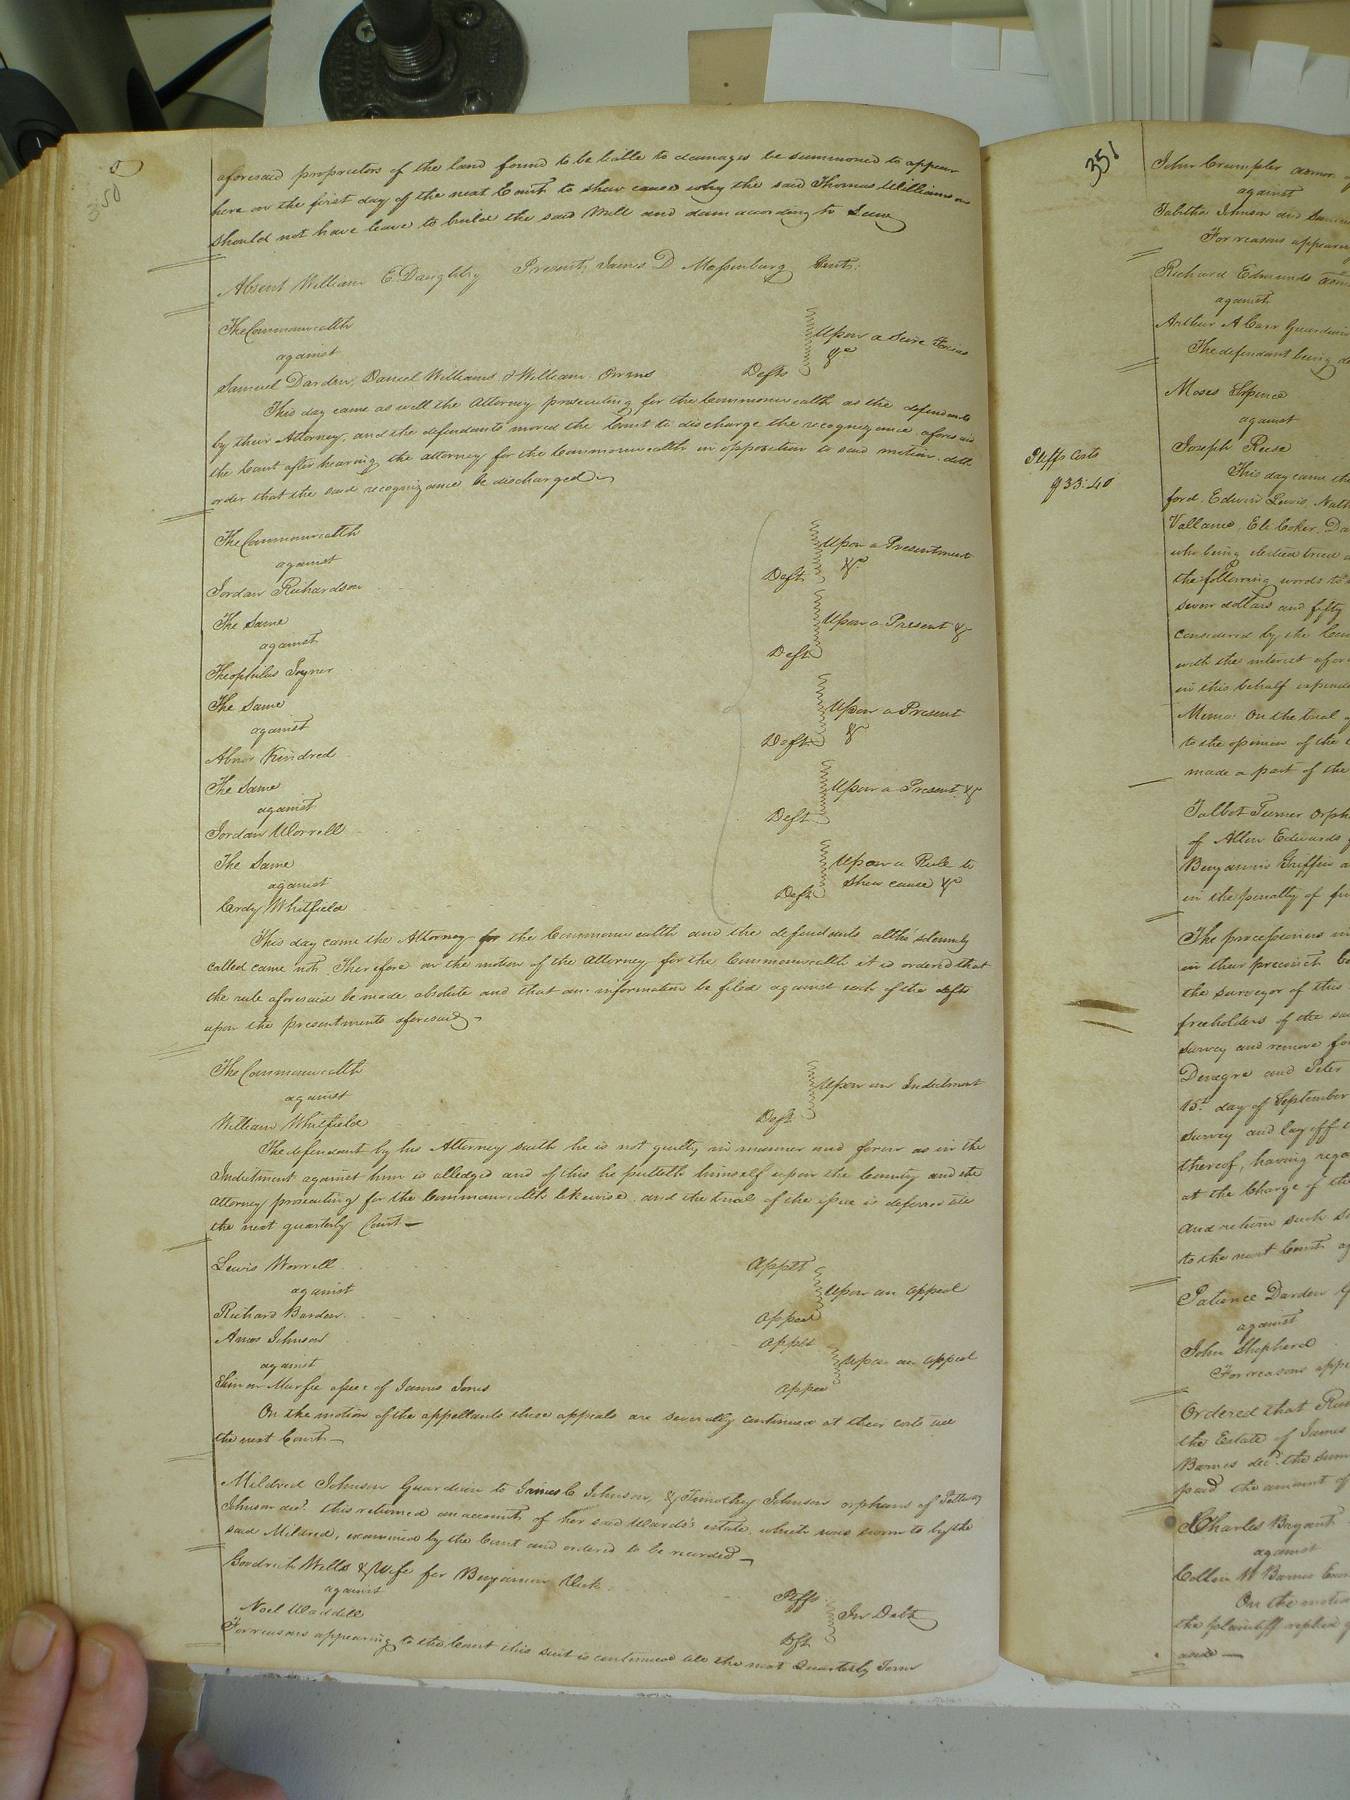 350
aforesaid proprietors of the land found to be liable to damages be summoned to appear
here on the first day of the next Court to shew cause why the said Thomas Williamson
should not have leave to build the said Mill and dam according to Law
Absent William E. Daughtry Present, James D Massenburg Gent:
The Commonwealth
against
Upon a Scire Facias
&c
Samuel Darden, Daniel Williams & William Owens Defts
This day came as well the Attorney prosecuting for the Commonwealth as the defendants
by their Attorney, and the defendants moved the Court to discharge the recognizance aforesaid
the Court after hearing the attorney for the Commonwealth in opposition to said motion doth
order that the said recognizance be discharged
The Commonwealth
against
Upon a Presentment
&c
Jordan Richardson Deft
The Same
against
Upon a Present &c
Theophilus Joyner Deft
The Same
against
Upon a Present
&c
Abner Kindred Deft
The Same
against
Upon a Present &c
Jordan Worrell Deft
The Same
against
Upon a Rule to
Shew cause &c
Cordy Whitfield Deft
This day came the Attorney for the Commonwealth and the defendants altho' solemnly
called came not. Therefore on the motion of the Attorney for the Commonwealth it is ordered that
the rule aforesaid be made absolute and that an information be filed against each of the defts
upon the presentments aforesaid
The Commonwealth
against
Upon an Indictment
William Whitfield Deft
The defendant by his Attorney saith he is not guilty in manner and form as in the
Indictment against him is alledged and of this he putteth himself upon the County and the
Attorney prosecuting for the Commonwealth likewise, and the trial of the issue is deferred till
the next quarterly Court
Lewis Worrell Applt
against
Upon an appeal
Richard Barden Appee
Amos Johnson Applt
against
Upon an appeal
Simon Murfee assee of James Jones Appee
On the motion of the appellants these appeals are severally continued at their costs till
the next Court
Mildred Johnson Guardian to James C Johnson, & Timothy Johnson orphans of
Johnson decd. this returned an account of her said Wards's estate, which was sworn to by the
said Mildred, examined by the Court and ordered to be recorded
Goodrich Wills & Wife for Benjamin Plffs
against
In Debt
Noel Waddell Dft
For reasons appearing to the Court this suit is continued till the next Quarterly Term
351
John Crumpler
against
Tabitha Johnson and
For reasons appearing
Richard Edmunds
against
Arthur A Carr Guardian
The defendant being
Moses Spence
against
Joseph Reese
Plffs Costs
$33.40
This day came the
ford, Edwin Lewis,
Eli Coker,
who being elected tried
the following words to
seven dollars and fifty
considered by the
with the interest
in this behalf
Memo: On the trial
to the opinion of the
made a part of the
Talbot Turner
of Allen Edwards
Benjamin Griffin
in the penalty of
The processioners
in their precinct
the surveyor of this
freeholders of the
survey and remove
and Peter
15th day of September
survey and lay off
thereof, having
at the Charge of the
and return such
to the next Court
Patience Darden
against
John Shepherd
For reasons
Ordered that
the Estate of James
Barnes decd. the sum
paid the amount of
Charles Bryant
against
On the motion
the plaintiff replied
aside